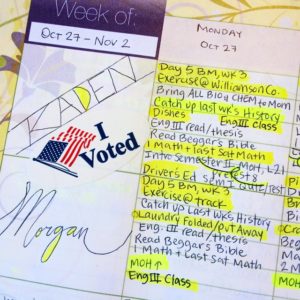 Week of:
OCT 27 - NOV 2
MONDAY
OCT 27
KADEN
I Voted
Day 5 BM, WK 3
Exercise@WilliamsonCo.
Bring All Biog CHEM to Mom
Catch up last wk's History
Dishes Eng III Class
Eng III read/thesis
Read Beggar's Bible
1 Math + Last Sat Math
Intro Semester II MOH, L21
Test 8
Driver's Ed Sem I Quiz/Test
Morgan
Day 5 BM, WK 3
Exercise@track
Catch Up Last Wk's History
Laundry Folded/put Away
Eng. III read/thesis
Read Beggar's Bible
1 Math + Last Sat Math
MOH ↑
Eng III Class